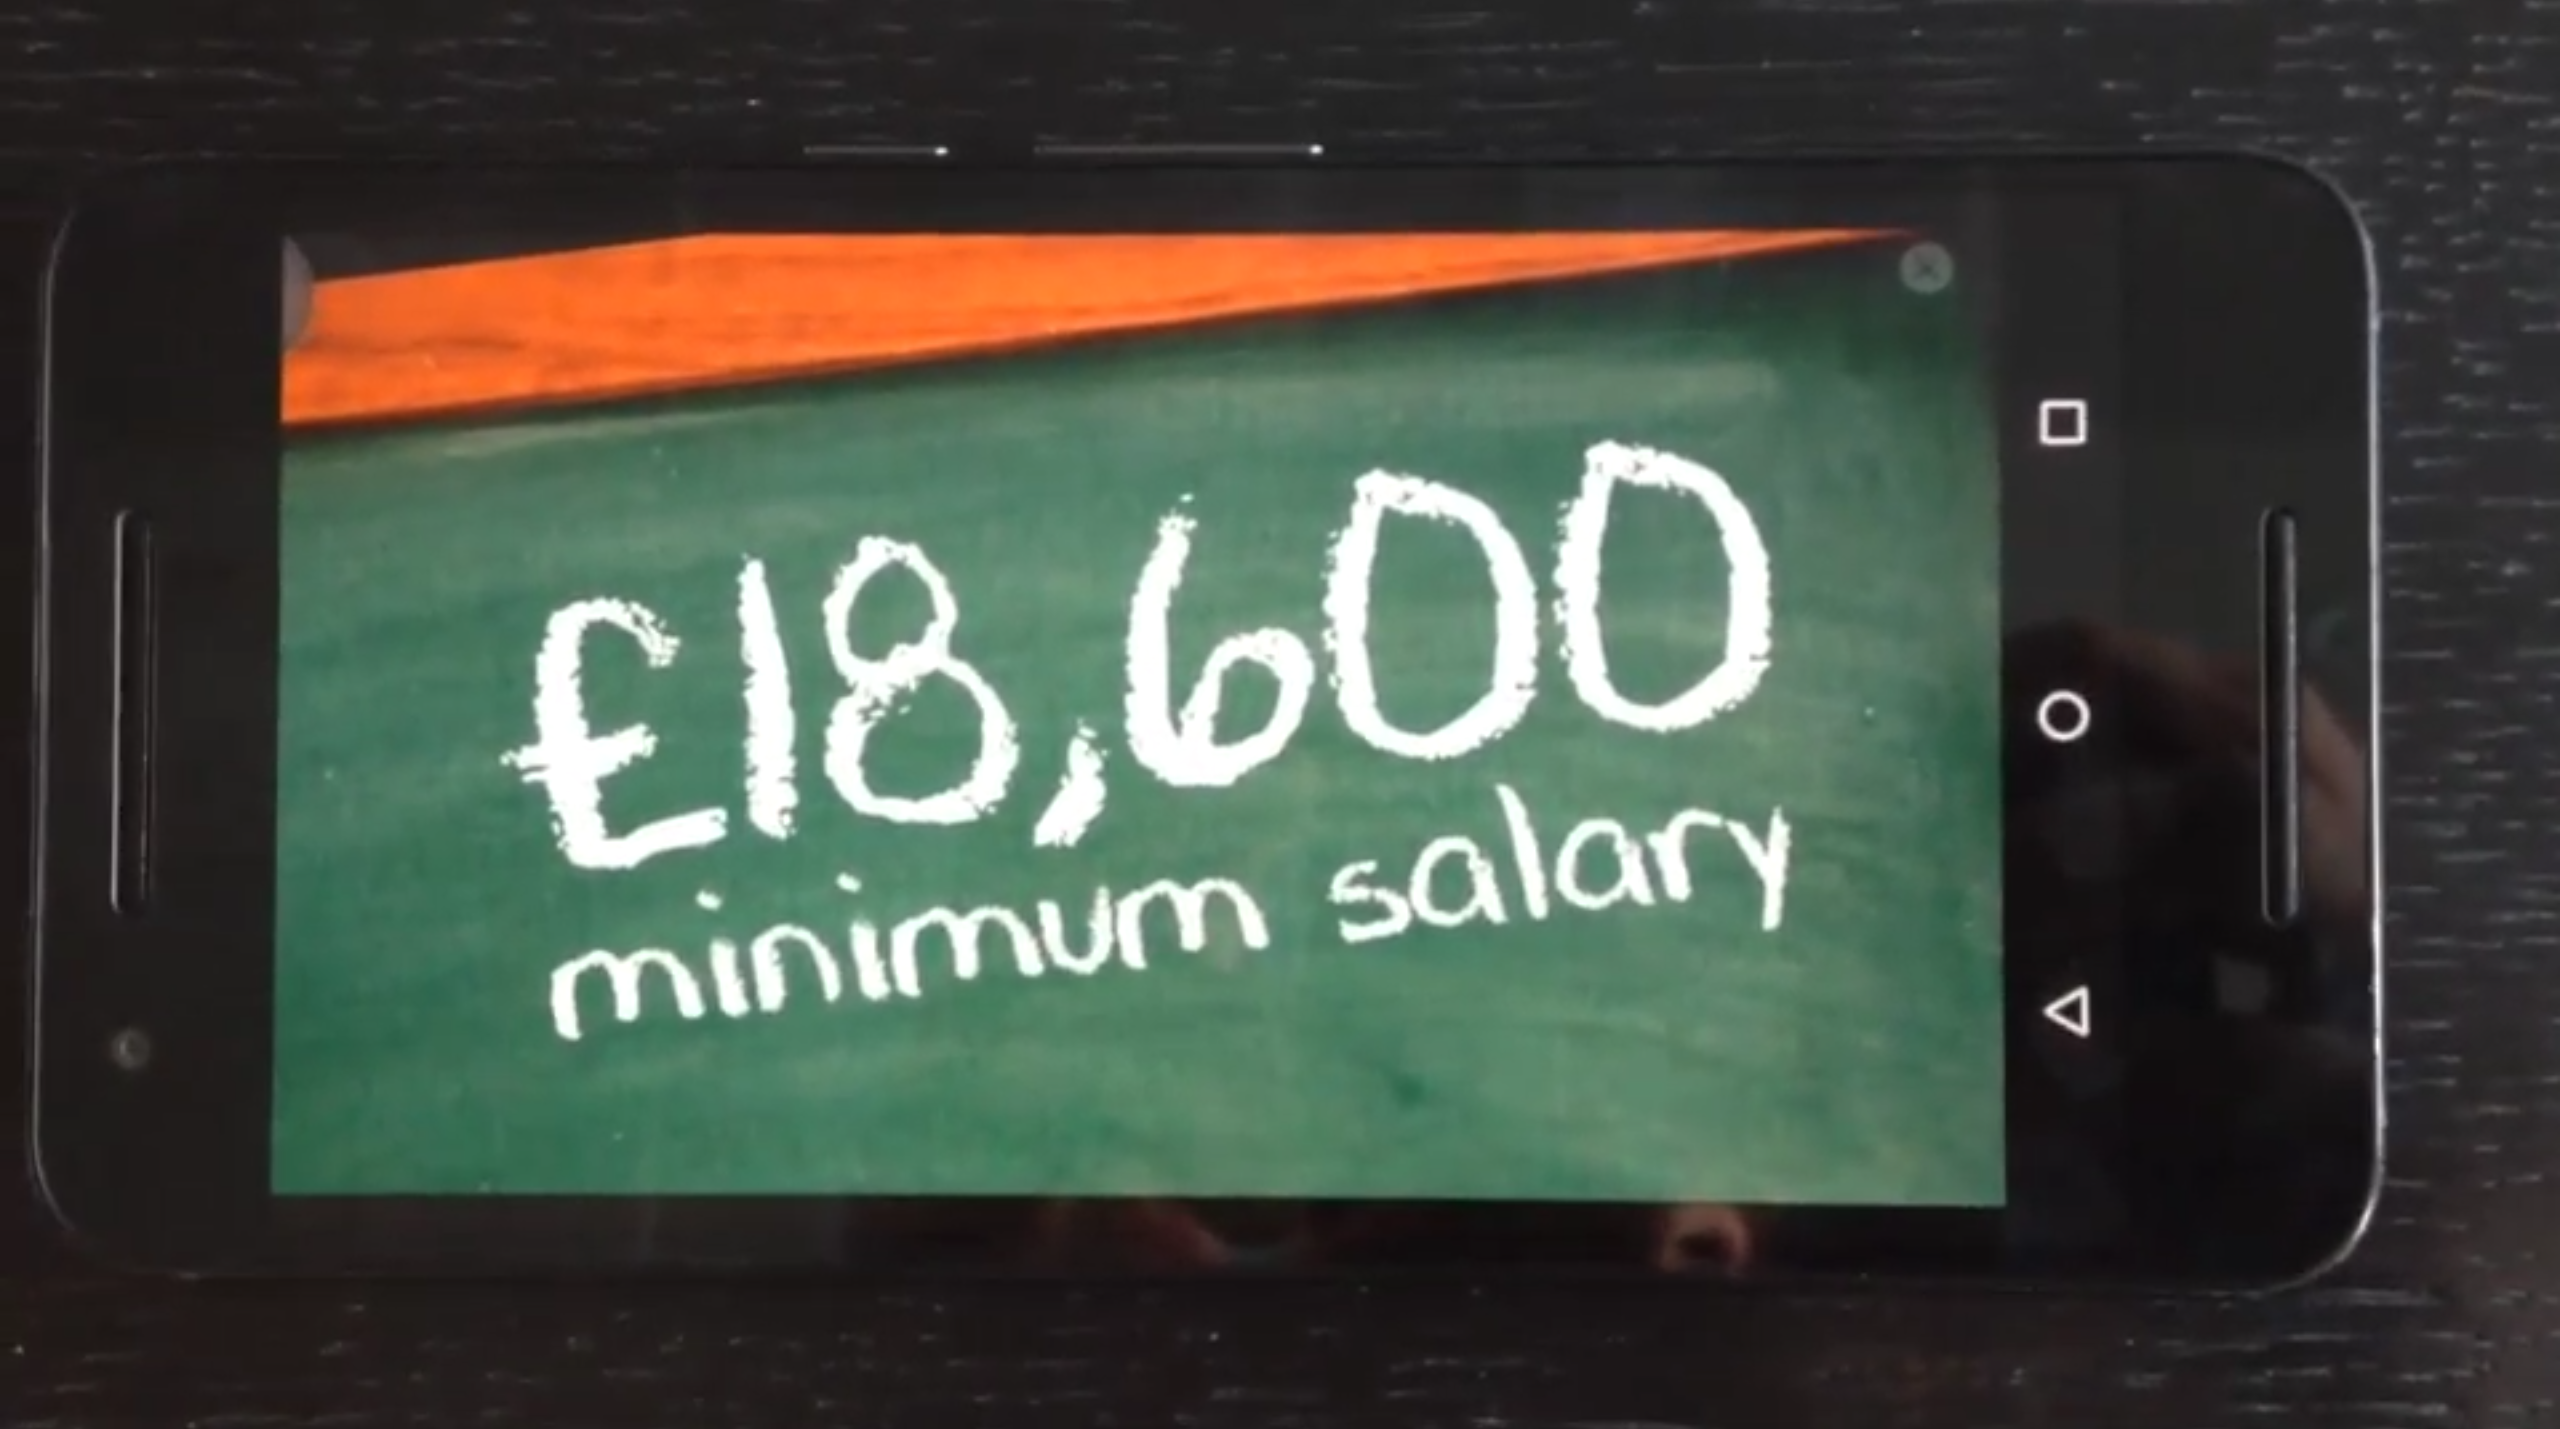 £18,600
minimum salary